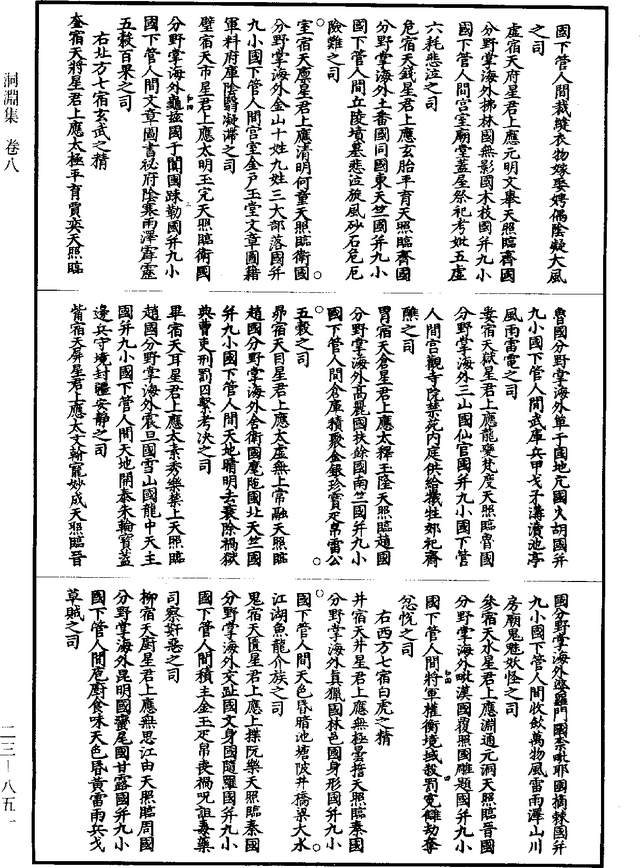 洞淵集 卷八
國下管人間裁縫衣物嫁娶娉偶陰凝大風
之司
虛宿天府星君上應元明文舉天照臨齊國
分野掌海外拂林國無影國木枝國并九小
國下管人間宮室廟堂蓋屋祭祀考妣五虛
六耗悲泣之司
危宿天錢星君上應玄胎平育天照臨齊國
分野掌海外土番國同國東天竺國并九小
國下管人間立陵墳墓悲泣旋風砂石危厄
險難之司
室宿天廩星君上應清明何童天照臨衛國
分野掌海外金山十姓九姓三大部落國并
九小國下管人間宮室金戶玉堂文章圖籍
軍料府庫陰翳凝滯之司
壁宿天市星君上應太明玉完天照臨衛國
分野掌海外龜茲國于闐國踈勒國并九小
國下管人間文章圖書秘府陰寒雨澤霹靂
五穀百果之司
右北方七宿玄武之精
奎宿天將星君上應太極平育賈奕天照臨
魯國分野掌海外單于國地亢國火胡國并
九小國下管人間武庫兵甲戈矛溝瀆池亭
風雨雷電之司
婁宿天獄星君上應龍變梵度天照臨魯國
分野掌海外三山國仙官國并九小國下管
人間宮觀寺院禁苑內庭供給犧牲郊祀齋
醮之司
胃宿天倉星君上應太釋玉隆天照臨趙國
分野掌海外高麗國扶餘國南竺國并九小
國下管人間倉庫積聚金銀珍寶疋帛雷公
五穀之司
昴宿天目星君上應太虛無上常融天照臨
趙國分野掌海外舍衛國魔陁國北天竺國
并九小國下管人間天地晴明去衰除禍獄
典曹吏刑罰囚繫考決之司
畢宿天耳星君上應太素秀樂禁上天照臨
趙國分野掌海外震旦國雪山國龍中天主
國并九小國下管人間天地開泰朱輪寶蓋
邊兵守境封疆安靜之司
觜宿天屏星君上應太文翰寵妙成天照臨晉
國分野掌海外婆羅門國奈吡耶國摘棘國并
九小國下管人間收斂萬物風雷雨澤山川
房廟鬼魅妖怪之司
參宿天水星君上應淵通元洞天照臨晉國
分野掌海外吡漢國覆照國雕題國并九小
國下管人間將軍權衡境域殺罰冤讎劫奪
忿悅之司
右西方七宿白虎之精
井宿天井星君上應無極曇誓天照臨秦國
分野掌海外真獵國林邑國身形國并九小
國下管人間天色昏暗池塘陂井橋梁大水
江湖魚龍介族之司
鬼宿天匱星君上應上揲阮樂天照臨秦國
分野掌海外交趾國文身國隨羅國并九小
國下管人間積主金玉疋帛喪禍呪詛毒藥
司察奸惡之司
柳宿天廚星君上應無思江由天照臨周國
分野掌海外昆明國蠻尾國甘露國并九小
國下管人間庖廚食味天色昏黃雷雨兵戈
草賊之司
二三—八五一